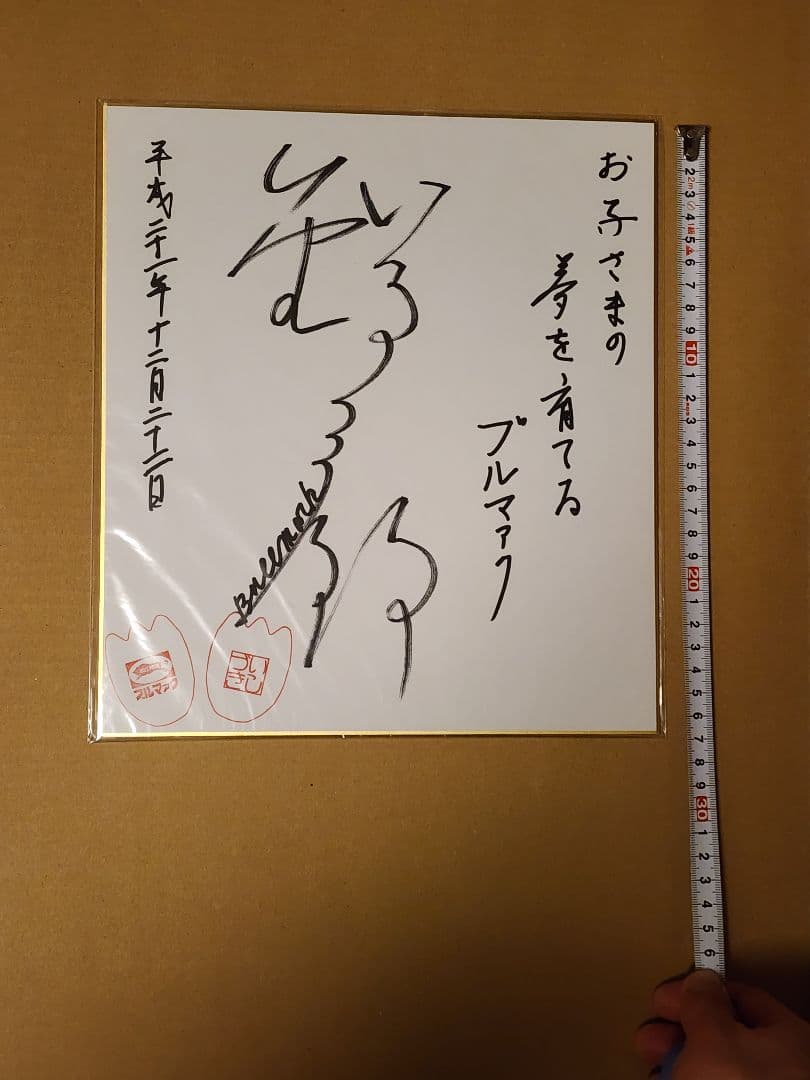 お子さまの
夢を育てる
ブルマァク
BULLMARK
平成二十一年十二月二十二日
ブルマァク
2m
2 3 4 5 6 7 8 9 10 1 2 3 4 5 6 7 8 9 20 1 2 3 4 5 6 7 8 9 30 1 2 3 4 5 6